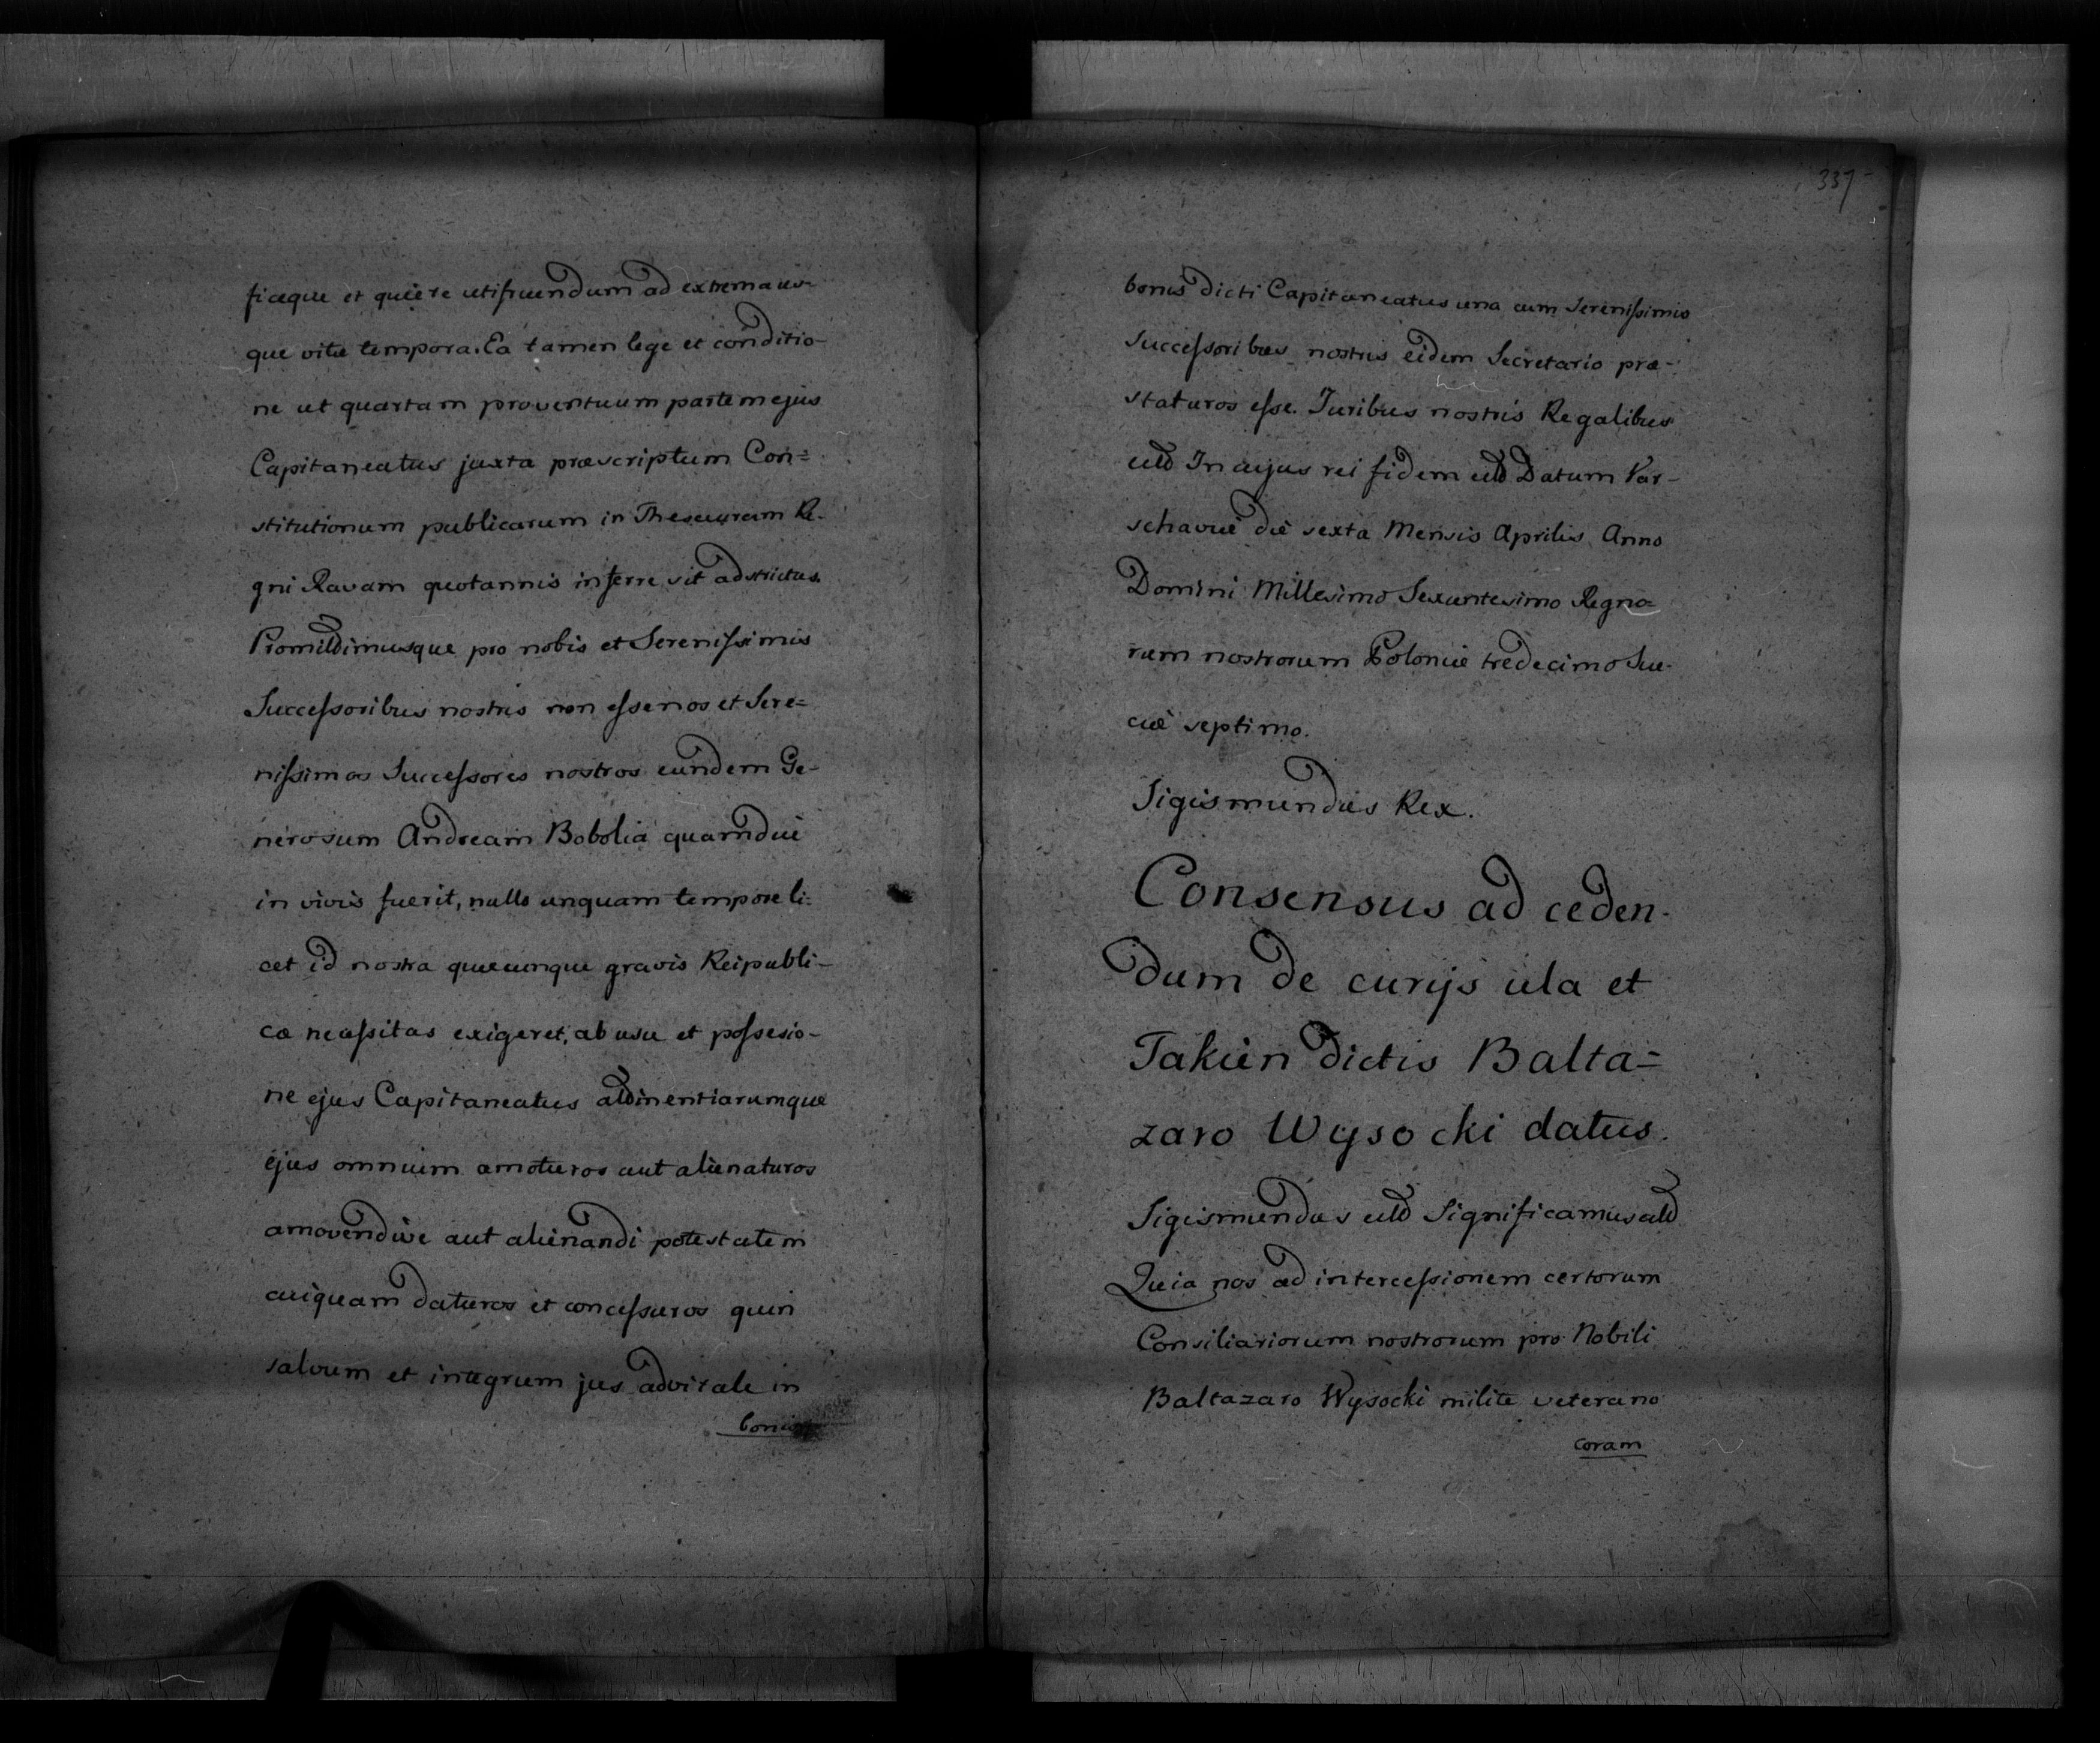 ficeque et quiete utifruendum ad extrema us-
que vitæ tempora. Ea tamen lege et conditio-
ne ut quartam proventuum partem ejus
Capitaneatus juxta præscriptum Con=
stitutionum publicarum in Thesaurum Re-
gni Ravam quotannis inferre sit adstrictus.
Promittimusque pro nobis et Serenissimis
Successoribus nostris non esse nos et Sere=
nissimos Successores nostros eundem Ge-
nerosum Andream Bobolia quamdiu
in vivis fuerit, nullo unquam tempore li=
cet id nostra quæcunque gravis Reipubli-
cæ necessitas exigeret, ab usu et possesio-
ne ejus Capitaneatus attinentiarumque
ejus omnium amoturos aut alienaturos
amovendive aut alienandi potestatem
cuiquam daturos et concessuros quin
salvum et integrum jus advitale in
bonis
337
bonis dicti Capitaneatus una cum Serenissimis
Successoribus nostris eidem Secretario præ-
staturos esse. Juribus nostris Regalibus
ett In cujus rei fidem ett Datum Var-
schaviæ die sexta Mensis Aprilis Anno
Domini Millesimo Sexcentesimo Regno=
rum nostrorum Poloniæ tredecimo Sue-
ciæ septimo.
Sigismundus Rex.
Consensus ad ceden-
dum de curijs ula et
Takien dictis Balta=
zaro Wysocki datus.
Sigismundus ett Significamus ett
Quia nos ad intercessionem certorum
Consiliariorum nostrorum pro Nobili
Baltazaro Wysocki milite veterano
coram